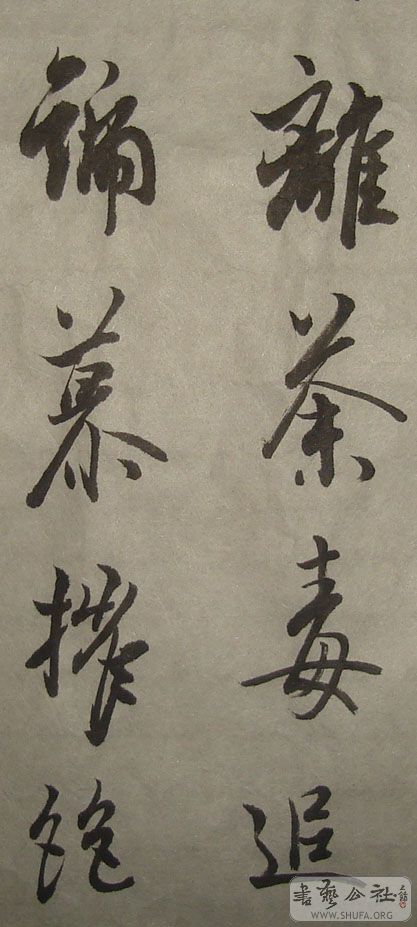 離荼毒追
號慕摧絶
書藝公社
WWW.SHUFA.ORG